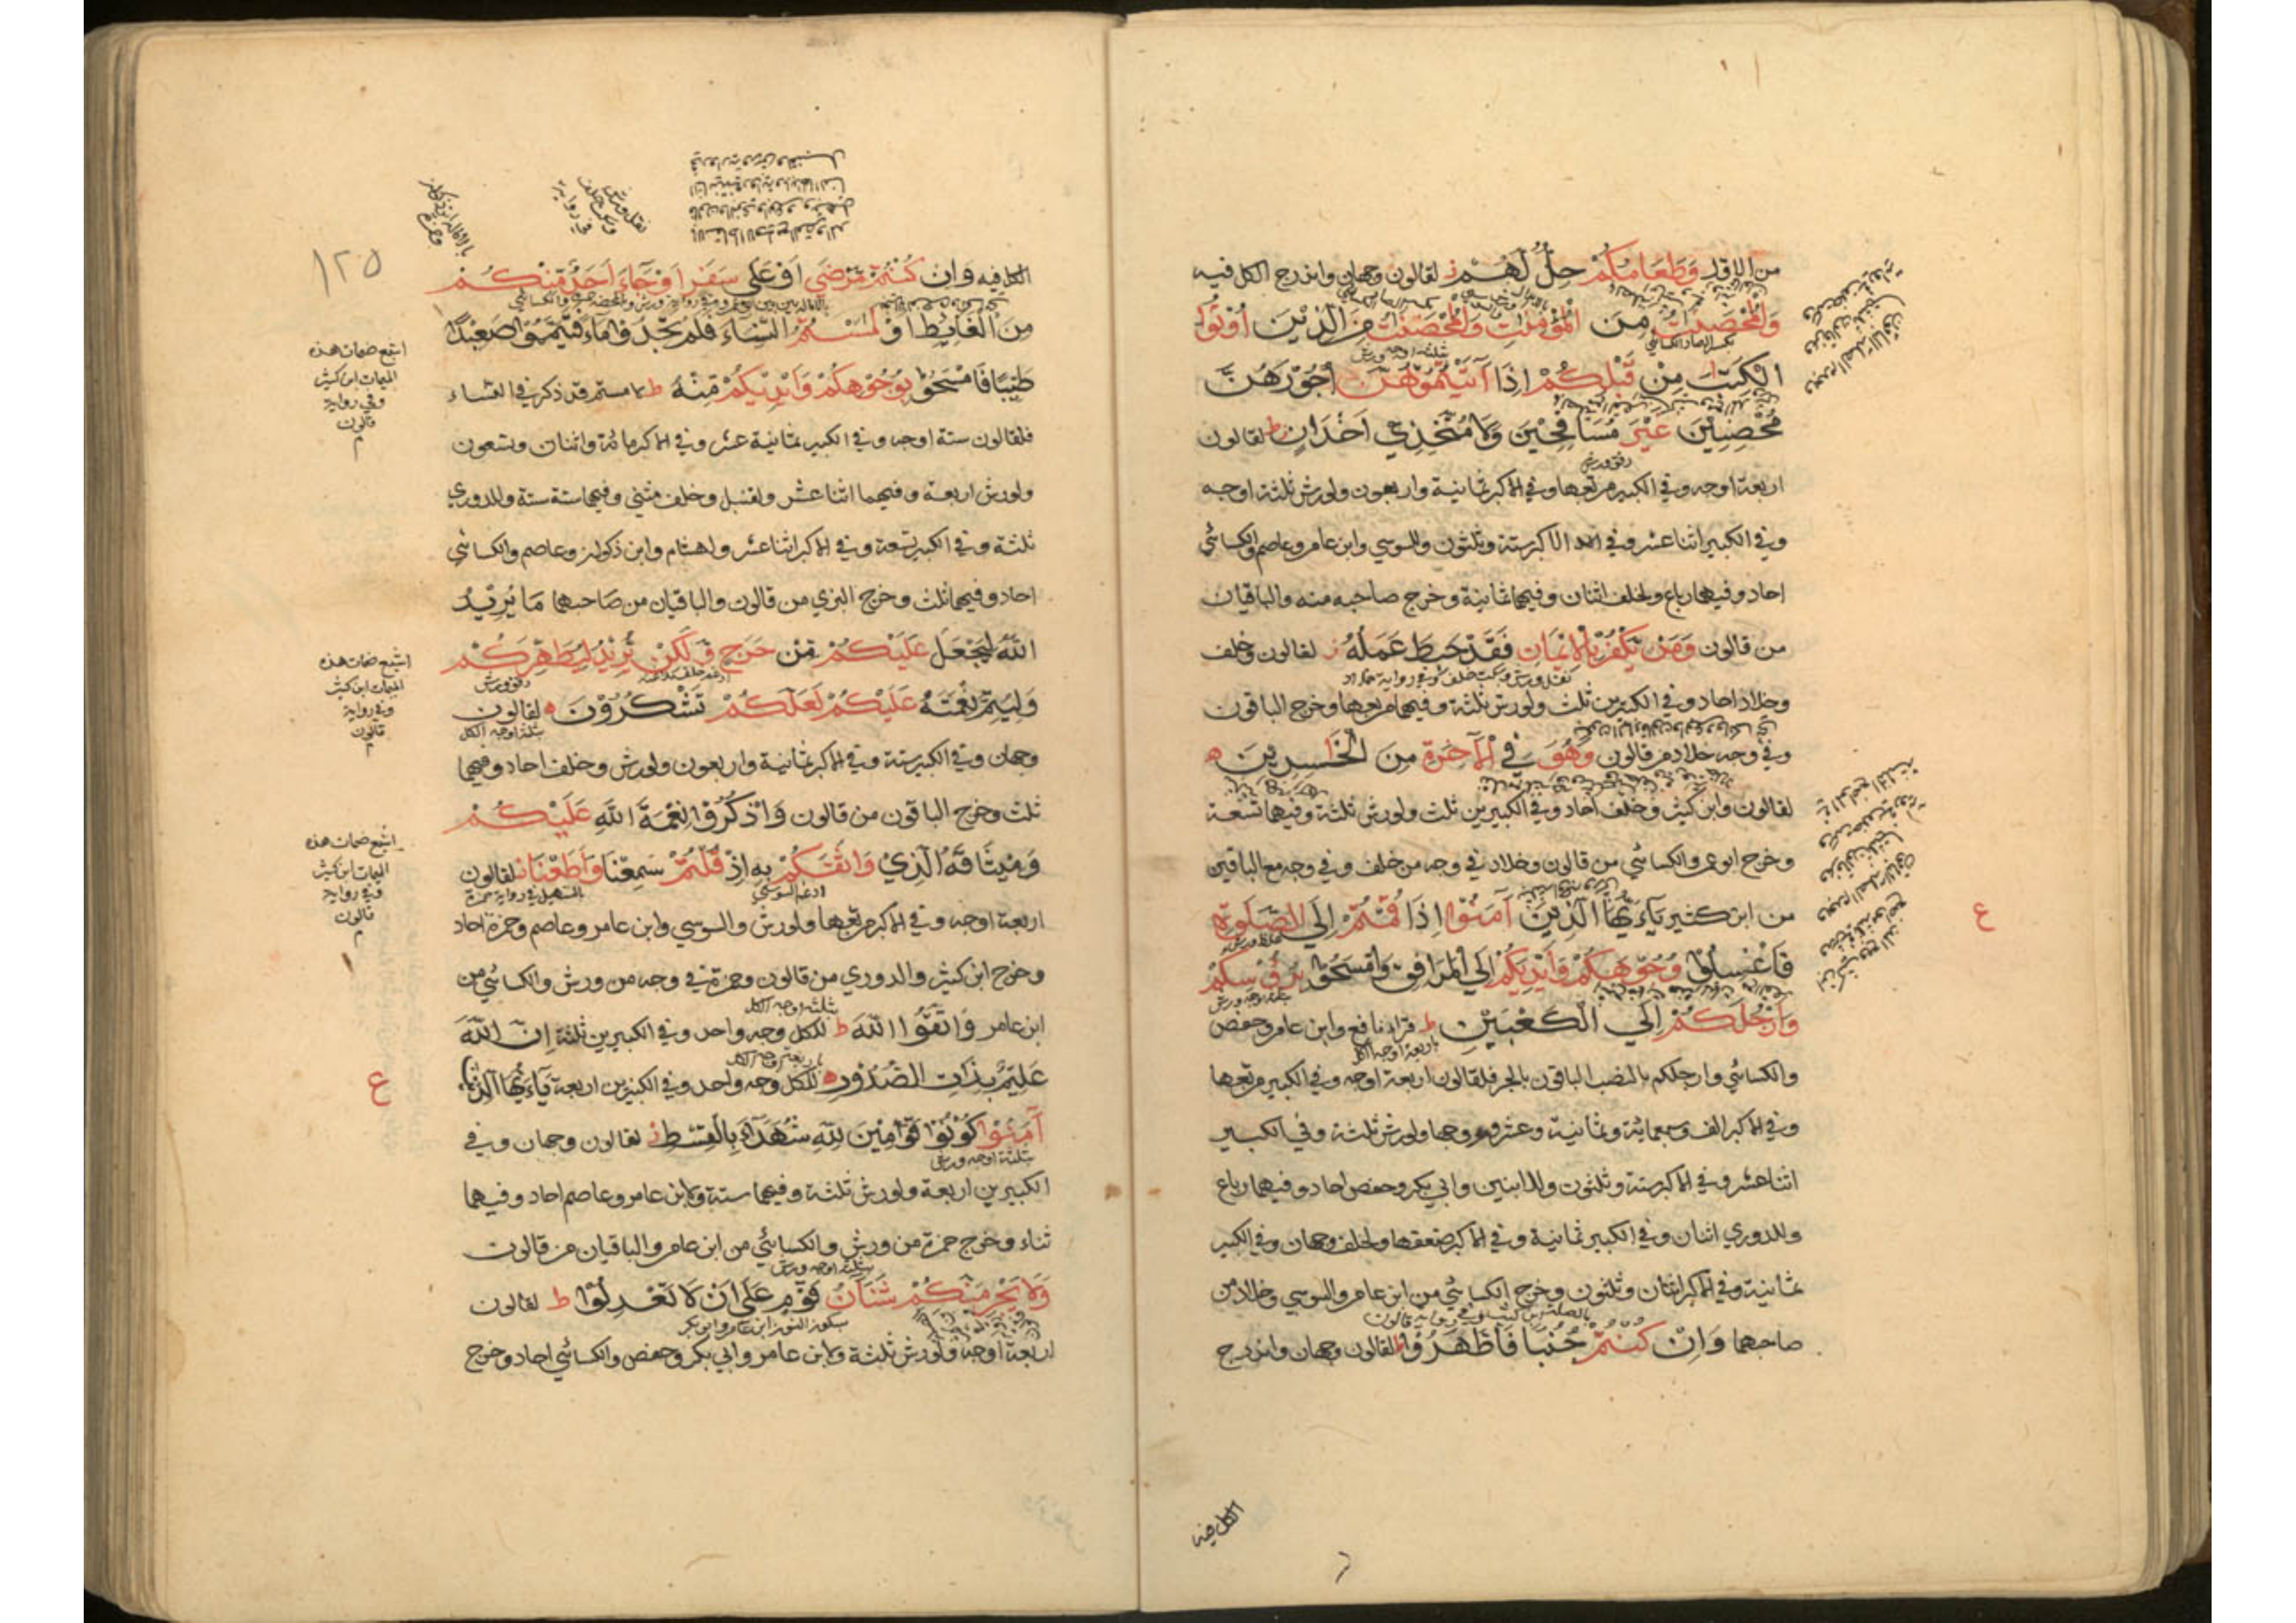 من الاول وَطَعَامُكُمْ حِلٌّ لَهُمْ ز لقالون وجهان واندرج الكل فيه
وَالْمُحْصَنٰتُ مِنَ الْمُؤْمِنٰتِ وَالْمُحْصَنٰتُ مِنَ الَّذِيْنَ اُوْتُوا
بكسر الصاد الكسائي
ثلثة اوجه ورش
الْكِتٰبَ مِنْ قَبْلِكُمْ اِذَا آتَيْتُمُوْهُنَّ اُجُوْرَهُنَّ
مُحْصِنِيْنَ غَيْرَ مُسَافِحِيْنَ وَلَا مُتَّخِذِيْ اَخْدَانٍ ط لقالون
رقق ورش
اربعة اوجه وفي الكبير مربعها وفي الاكبر ثمانية واربعون ولورش ثلثة اوجه
وفي الكبير اثنا عشر وفي الاكبر ستة وثلثون وللسوسي وابن عامر وعاصم والكسائي
احاد وفيهما رباع ولخلف اثنان وفيهما ثمانية وخرج صاحبه منه والباقيان
من قالون وَمَنْ يَّكْفُرْ بِالْاِيْمَانِ فَقَدْ حَبِطَ عَمَلُهُ ز لقالون وخلف
وخلاد احاد وفي الكبيرين ثلث ولورش ثلثة وفيهما مربعها وخرج الباقون
وفي وجه خلاد من قالون وَهُوَ فِي الْآخِرَةِ مِنَ الْخٰسِرِيْنَ ه
لقالون وابن كثير وخلف احاد وفي الكبيرين ثلث ولورش ثلثة وفيهما تسعة
وخرج ابو عمرو والكسائي من قالون وخلاد في وجه من خلف وفي وجه مع الباقين
من ابن كثير يٰٓاَيُّهَا الَّذِيْنَ آمَنُوْا اِذَا قُمْتُمْ اِلَى الصَّلٰوةِ
ع
فَاغْسِلُوْا وُجُوْهَكُمْ وَاَيْدِيَكُمْ اِلَى الْمَرَافِقِ وَامْسَحُوْا بِرُؤُسِكُمْ
ثلثة اوجه ورش
وَاَرْجُلَكُمْ اِلَى الْكَعْبَيْنِ ط قراه نافع وابن عامر وحفص
باربعة اوجه الكل
والكسائي وارجلكم بالنصب الباقون بالجر فلقالون اربعة اوجه وفي الكبير مربعها
وفي الاكبر الف وسبعمائة وثمانية وعشرون وجها ولورش ثلثة وفي الكبير
اثنا عشر وفي الاكبر ستة وثلثون وللابنين وابي بكر وحفص احاد وفيهما رباع
وللدوري اثنان وفي الكبير ثمانية وفي الاكبر ضعفها ولخلف وجهان وفي الكبير
ثمانية وفي الاكبر اثنان وثلثون وخرج الكسائي من ابن عامر والسوسي وخلاد من
بالصلة ابن كثير وفي رواية قالون
صاحبهما وَاِنْ كُنْتُمْ جُنُبًا فَاطَّهَّرُوْا ط لقالون وجهان واندرج
الكل فيه
١٢٥
الكل فيه وَاِنْ كُنْتُمْ مَرْضٰى اَوْ عَلٰى سَفَرٍ اَوْ جَآءَ اَحَدٌ مِنْكُمْ
مِنَ الْغَآئِطِ اَوْ لٰمَسْتُمُ النِّسَآءَ فَلَمْ تَجِدُوْا مَآءً فَتَيَمَّمُوْا صَعِيْدًا
اشبع ضمات هذه
الميمات ابن كثير
وفي رواية
قالون
م
طَيِّبًا فَامْسَحُوْا بِوُجُوْهِكُمْ وَاَيْدِيْكُمْ مِنْهُ ط لامستم قد ذكر في النساء
فلقالون ستة اوجه وفي الكبير ثمانية عشر وفي الاكبر مائة واثنان وتسعون
ولورش اربعة وفيهما اثنا عشر ولقنبل وخلف مثنى وفيهما ستة ستة وللدوري
ثلثة وفي الكبير تسعة وفي الاكبر اثنا عشر ولهشام وابن ذكوان وعاصم والكسائي
احاد وفيهما ثلث وخرج البزي من قالون والباقيان من صاحبهما مَا يُرِيْدُ
اللّٰهُ لِيَجْعَلَ عَلَيْكُمْ مِّنْ حَرَجٍ وَّلٰكِنْ يُّرِيْدُ لِيُطَهِّرَكُمْ
رقق ورش
اشبع ضمات هذه
الميمات ابن كثير
وفي رواية
قالون
م
وَلِيُتِمَّ نِعْمَتَهُ عَلَيْكُمْ لَعَلَّكُمْ تَشْكُرُوْنَ ه لقالون
بثلثة اوجه الكل
وجهان وفي الكبير ستة وفي الاكبر ثمانية واربعون ولورش وخلف احاد وفيهما
ثلث وخرج الباقون من قالون وَاذْكُرُوْا نِعْمَةَ اللّٰهِ عَلَيْكُمْ
اشبع ضمات هذه
الميمات ابن كثير
وفي رواية
قالون
م
وَمِيْثَاقَهُ الَّذِيْ وَاثَقَكُمْ بِهِ اِذْ قُلْتُمْ سَمِعْنَا وَاَطَعْنَا ز لقالون
ادغم السوسي
التسهيل في رواية حمزة
اربعة اوجه وفي الاكبر مربعها ولورش والسوسي وابن عامر وعاصم وحمزة احاد
وخرج ابن كثير والدوري من قالون وحمزة في وجه من ورش والكسائي من
بثلثة اوجه الكل
ابن عامر وَاتَّقُوا اللّٰهَ ط للكل وجه واحد وفي الكبيرين ثلثة اِنَّ اللّٰهَ
باربعة اوجه الكل
عَلِيْمٌ بِذَاتِ الصُّدُوْرِ ه للكل وجه واحد وفي الكبيرين اربعة يٰٓاَيُّهَا الَّذِيْنَ
ع
آمَنُوْا كُوْنُوْا قَوَّامِيْنَ لِلّٰهِ شُهَدَآءَ بِالْقِسْطِ ز لقالون وجهان وفي
بثلثة اوجه ورش
الكبيرين اربعة ولورش ثلثة وفيهما ستة ولابن عامر وعاصم احاد وفيهما
ثناء وخرج حمزة من ورش والكسائي من ابن عامر والباقيان من قالون
بثلثة اوجه ورش
وَلَا يَجْرِمَنَّكُمْ شَنَاٰنُ قَوْمٍ عَلٰٓى اَنْ لَا تَعْدِلُوْا ط لقالون
بسكون النون ابن عامر وابو بكر
اربعة اوجه ولورش ثلثة ولابن عامر وابي بكر وحفص والكسائي احاد وخرج